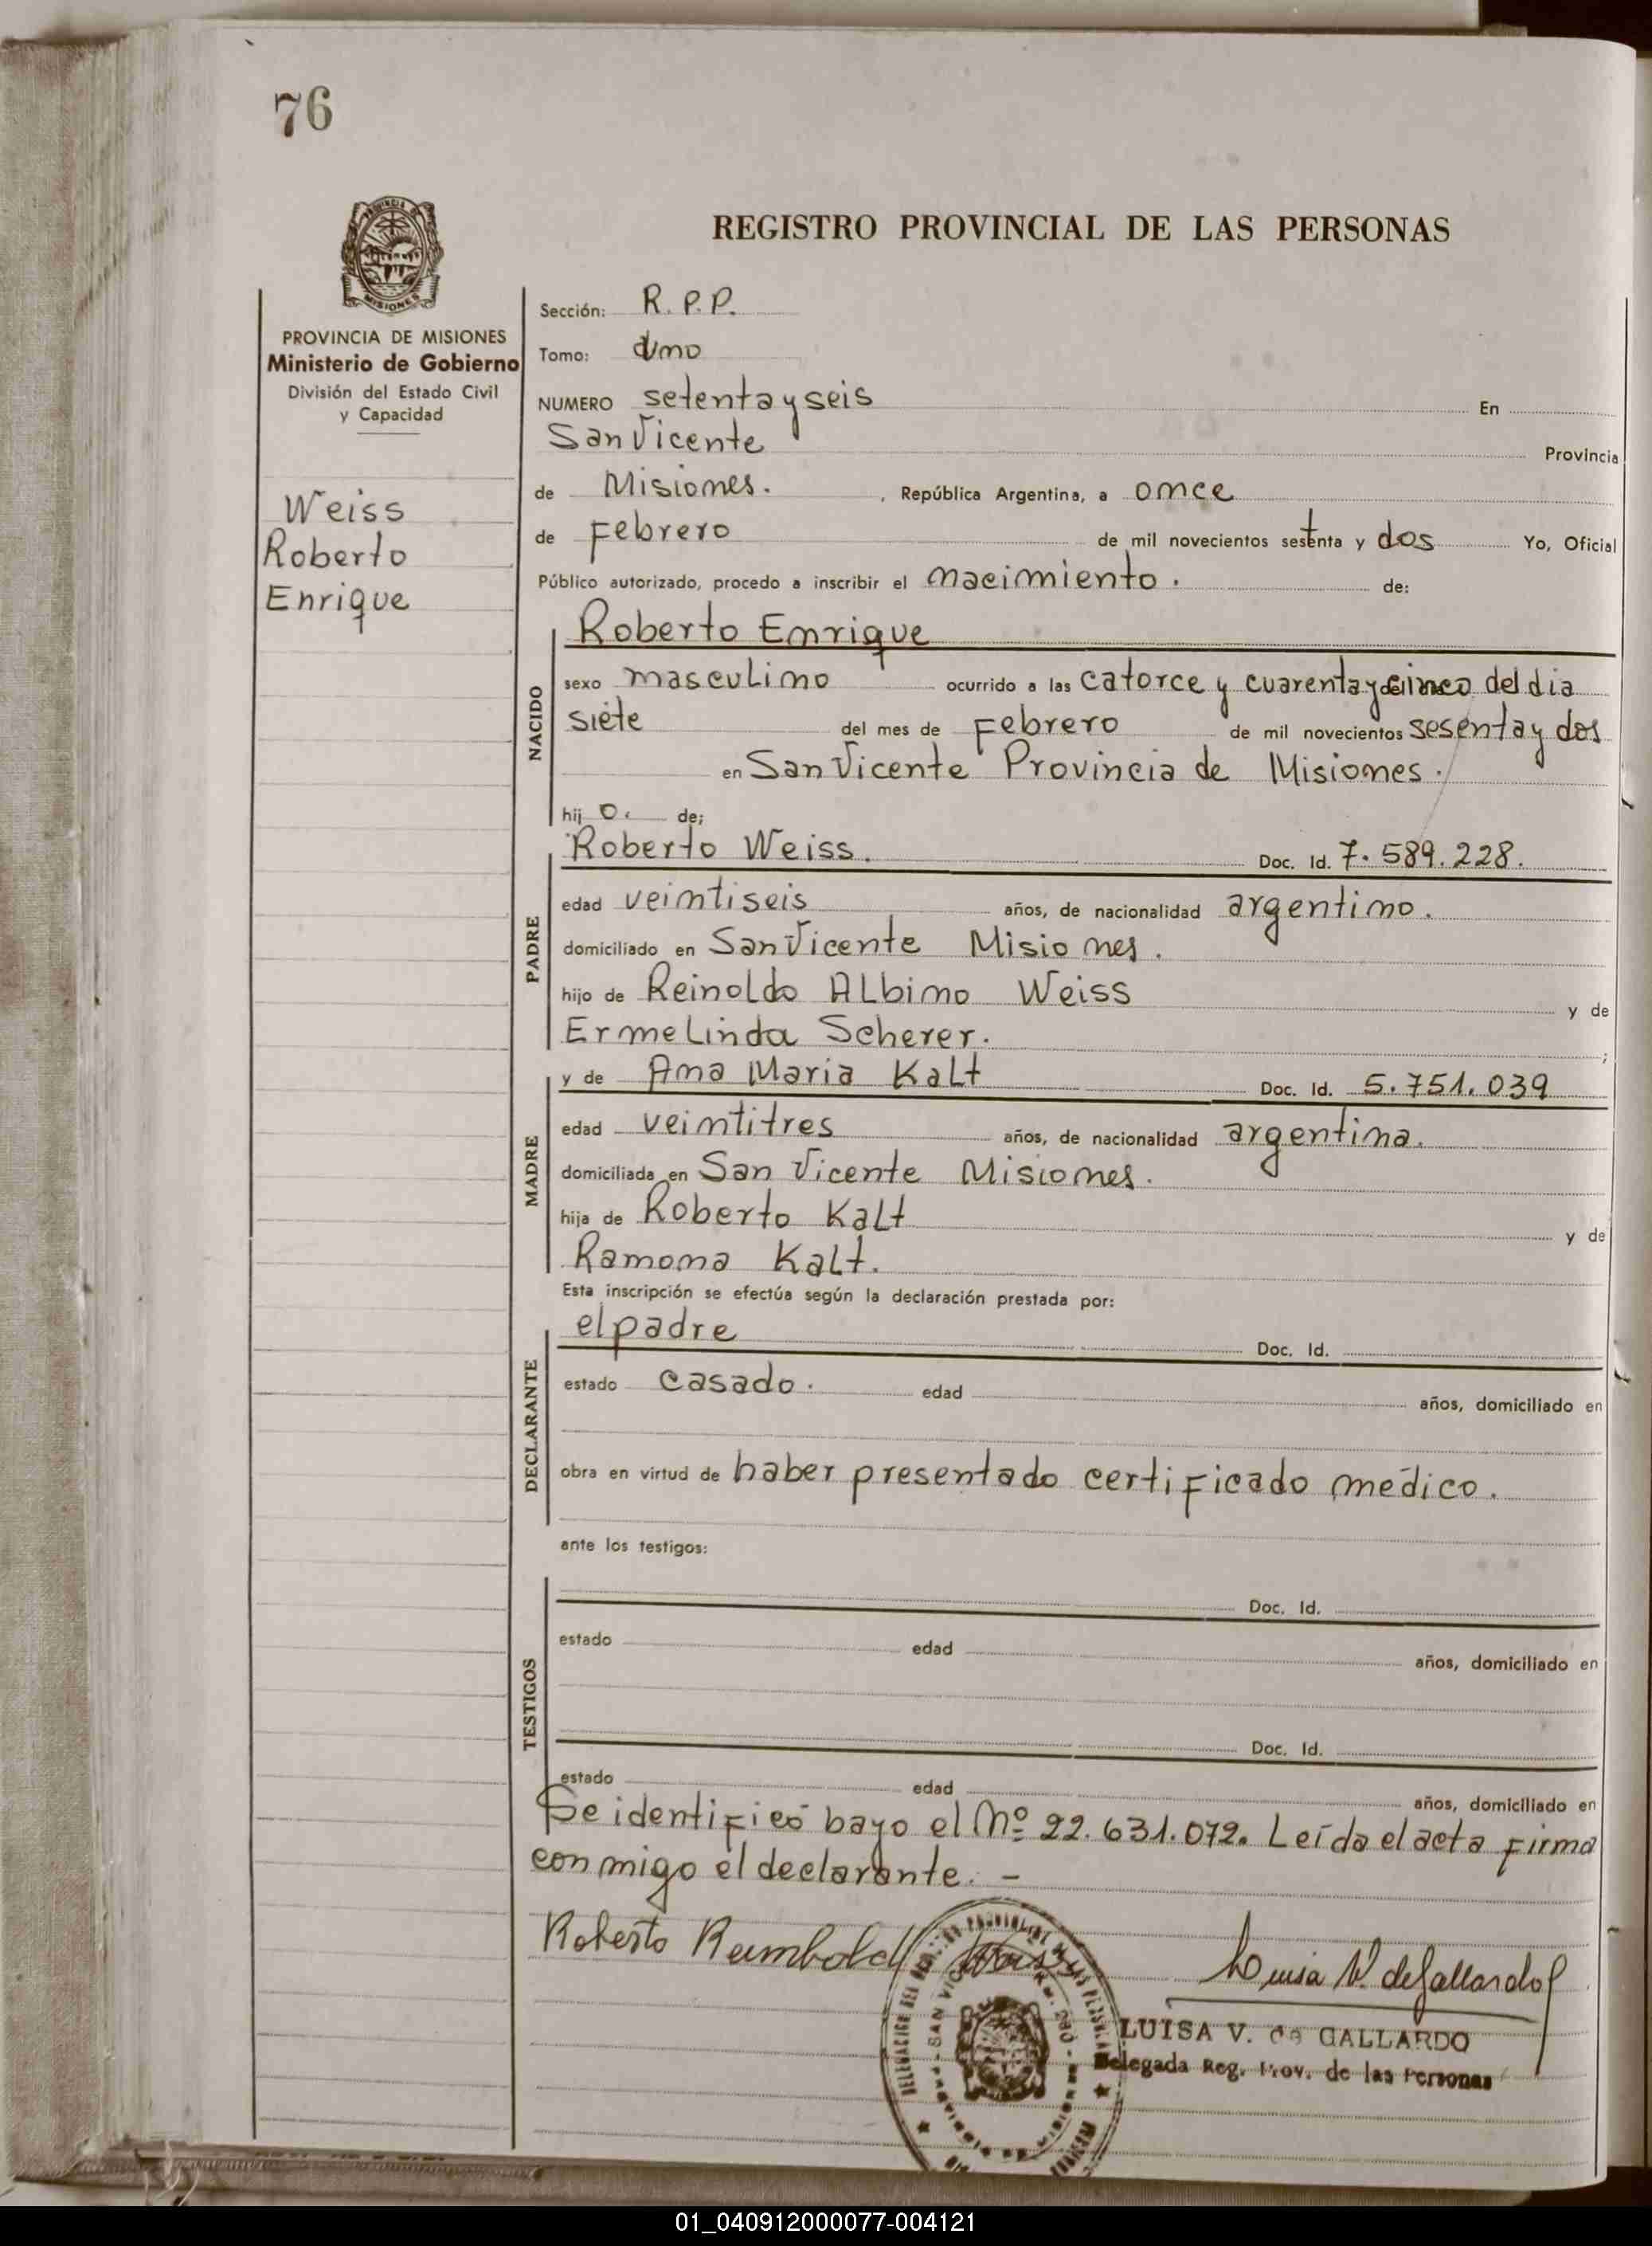 76
REGISTRO PROVINCIAL DE LAS PERSONAS
MISIONES
PROVINCIA DE MISIONES
Ministerio de Gobierno
División del Estado Civil
y Capacidad
Weiss
Roberto
Enrique
Sección: R. P. P.
Tomo: uno
NUMERO setenta y seis En
San Vicente Provincia
de Misiones. , República Argentina, a once
de Febrero de mil novecientos setenta y dos Yo, Oficial
Público autorizado, procedo a inscribir el nacimiento. de:
NACIDO
Roberto Enrique
sexo masculino ocurrido a las catorce y cuarenta y cinco del dia
siete del mes de Febrero de mil novecientos sesenta y dos
en San Vicente Provincia de Misiones.
hij o. de;
PADRE
Roberto Weiss. Doc. Id. 7.589.228.
edad veintiseis años, de nacionalidad argentino.
domiciliado en San Vicente Misiones.
hijo de Reinoldo Albino Weiss y de
Ermelinda Scherer. ;
MADRE
y de Ana Maria Kalt Doc. Id. 5.751.039
edad veintitres años, de nacionalidad argentina.
domiciliada en San Vicente Misiones.
hija de Roberto Kalt y de
Ramona Kalt.
Esta inscripción se efectúa según la declaración prestada por:
DECLARANTE
el padre Doc. Id.
estado casado. edad años, domiciliado en
obra en virtud de haber presentado certificado médico.
ante los testigos:
TESTIGOS
Doc. Id.
estado edad años, domiciliado en
Doc. Id.
estado edad años, domiciliado en
Se identificó bayo el Nº 22.631.072. Leída el acta firma
conmigo el declarante. -
Roberto Reimboldt Weiss
Luisa V. de Gallardo
LUISA V. de GALLARDO
Delegada Reg. Prov. de las Personas
SAN VIC
01_040912000077-004121